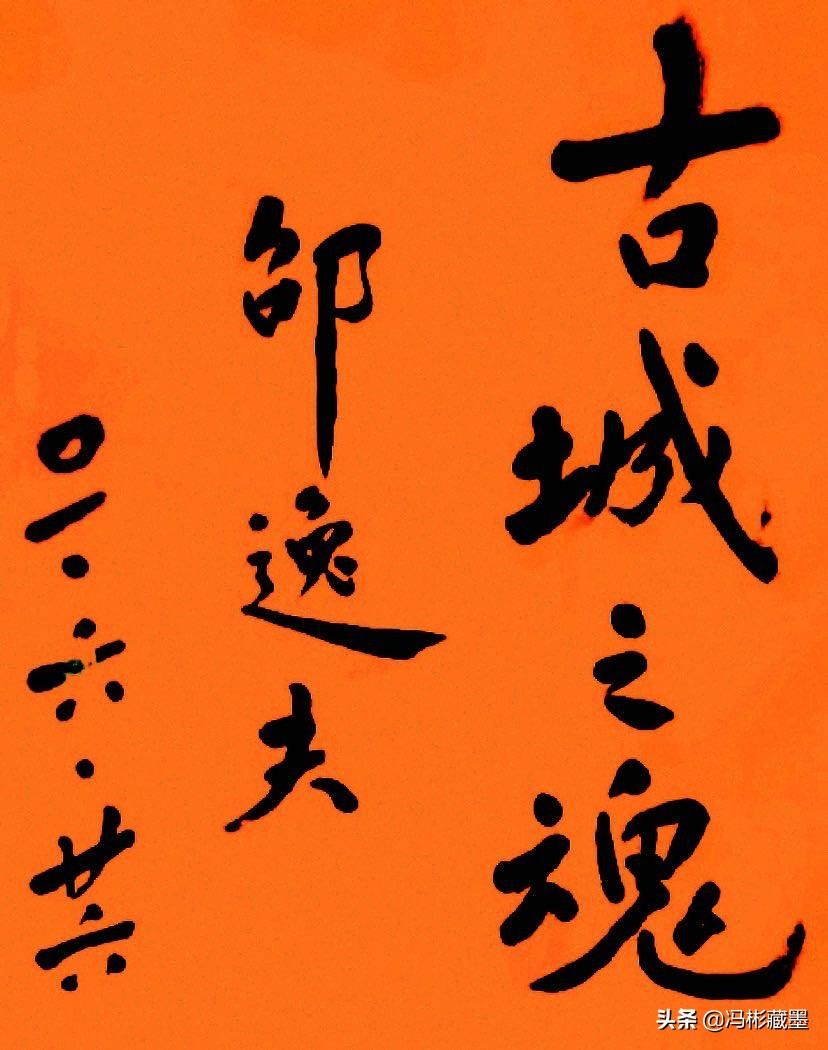 古城之魂
邵逸夫
〇一·六·廿六
头条 @冯彬藏墨